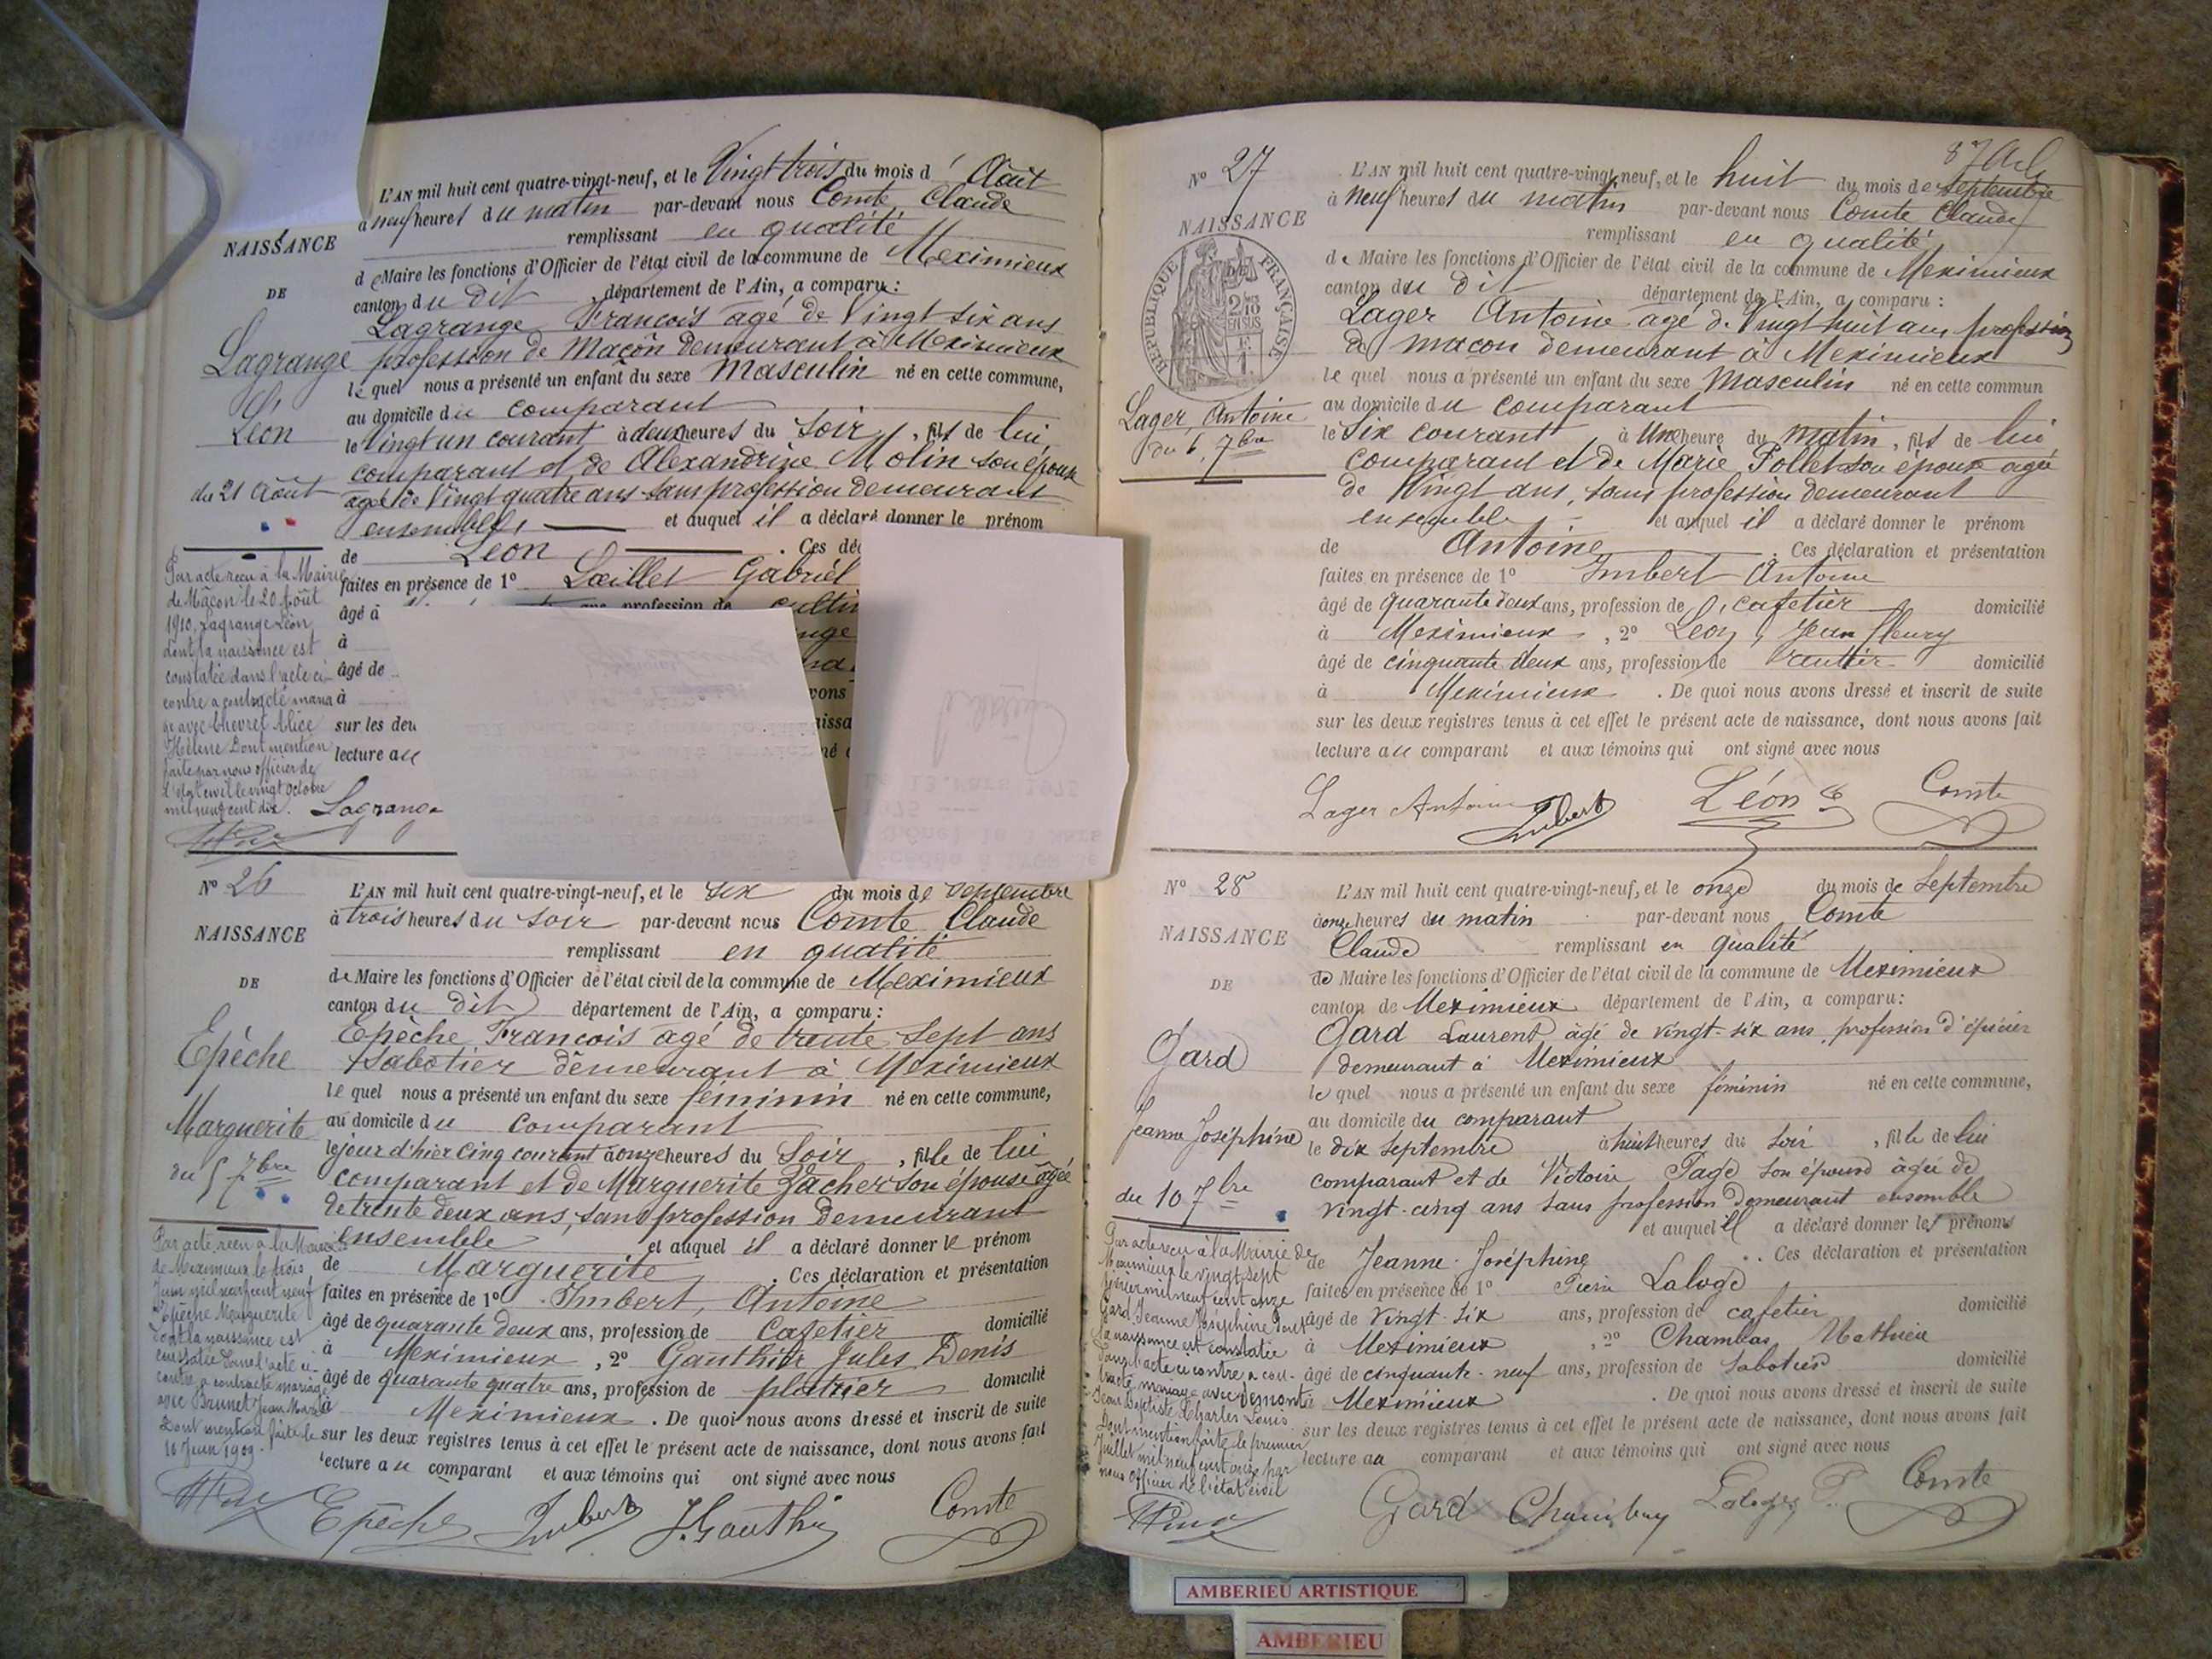 L'AN mil huit cent quatre-vingt-neuf, et le Vingt trois du mois d' Août
à neuf heures du matin par-devant nous Comte Claude
remplissant en qualité
de Maire les fonctions d'Officier de l'état civil de la commune de Meximieux
canton du dit département de l'Ain, a comparu :
Lagrange François agé de Vingt six ans
profession de Maçon demeurant à Meximieux
le quel nous a présenté un enfant du sexe Masculin né en cette commune,
au domicile du comparant
le Vingt un courant à deux heures du Soir, fils de lui
comparant et de Alexandrine Molin son épouse
agée de Vingt quatre ans sans profession demeurant
ensemble, et auquel il a déclaré donner le prénom
de Léon . Ces
faites en présence de 1º Lœillet Gabriel
âgé
ans, profession de
à
âgé de
vons
à
sur les deu
lecture au
Lagrange
NAISSANCE
DE
Lagrange
Léon
du 21 Août
Par acte reçu à la Mairie
de Mâcon le 20 Août
1910, Lagrange Léon
dont la naissance est
constatée dans l'acte ci-
contre a contracté maria
ge avec Chevret Alice
Hélène Dont mention
faite par nous officier de
l'état civil le vingt Octobre
mil neuf cent dix.
Nº 26
NAISSANCE
DE
Epèche
Marguerite
du 5 7bre
L'AN mil huit cent quatre-vingt-neuf, et le Six du mois de Septembre
à trois heures du soir par-devant nous Comte Claude
remplissant en qualité
de Maire les fonctions d'Officier de l'état civil de la commune de Meximieux
canton du dit département de l'Ain, a comparu :
Epèche François agé de trente sept ans
Sabotier demeurant à Meximieux
le quel nous a présenté un enfant du sexe féminin né en cette commune,
au domicile du comparant
le jour d'hier cinq courant à onze heures du Soir, fille de lui
comparant et de Marguerite Zacher son épouse agée
de trente deux ans, sans profession demeurant
ensemble et auquel il a déclaré donner le prénom
de Marguerite . Ces déclaration et présentation
faites en présence de 1º Imbert, Antoine
âgé de quarante deux ans, profession de Cafetier domicilié
à Meximieux, 2º Gauthier Jules Denis
âgé de quarante quatre ans, profession de platrier domicilié
à Meximieux . De quoi nous avons dressé et inscrit de suite
sur les deux registres tenus à cet effet le présent acte de naissance, dont nous avons fait
lecture au comparant et aux témoins qui ont signé avec nous
Epèche Imbert J. Gauthier Comte
Par acte reçu à la Mairie
de Meximieux le trois
Juin mil neuf cent neuf
Epèche Marguerite
dont la naissance est
constatée dans l'acte ci-
contre a contracté mariage
avec Brunet Jean Marie
Dont mention faite le
10 Juin 1909.
Nº 27
NAISSANCE
RÉPUBLIQUE FRANÇAISE
2/10 EN SUS
Lager, Antoine
du 6, 7bre
87
L'AN mil huit cent quatre-vingt-neuf, et le huit du mois de Septembre
à neuf heures du matin par-devant nous Comte Claude
remplissant en qualité
de Maire les fonctions d'Officier de l'état civil de la commune de Meximieux
canton du dit département de l'Ain, a comparu :
Lager Antoine agé de Vingt huit ans, profession
de macon demeurant à Meximieux
le quel nous a présenté un enfant du sexe Masculin né en cette commun
au domicile du comparant
le Six courant à Une heure du matin, fils de lui
comparant et de Marie Pollet son épouse agée
de Vingt ans, sans profession demeurant
ensemble et auquel il a déclaré donner le prénom
de Antoine . Ces déclaration et présentation
faites en présence de 1º Imbert Antoine
âgé de quarante deux ans, profession de cafetier domicilié
à Meximieux, 2º Léon, Jean fleury
âgé de cinquante deux ans, profession de rentier domicilié
à Meximieux . De quoi nous avons dressé et inscrit de suite
sur les deux registres tenus à cet effet le présent acte de naissance, dont nous avons fait
lecture au comparant et aux témoins qui ont signé avec nous
Lager Antoine Imbert Léon Comte
Nº 28
NAISSANCE
DE
Gard
Jeanne Joséphine
du 10 7bre
L'AN mil huit cent quatre-vingt-neuf, et le onze du mois de Septembre
à onze heures du matin par-devant nous Comte
Claude remplissant en qualité
de Maire les fonctions d'Officier de l'état civil de la commune de Meximieux
canton de Meximieux département de l'Ain, a comparu :
Gard Laurent âgé de vingt-six ans, profession d'épicier
demeurant à Meximieux
le quel nous a présenté un enfant du sexe féminin né en cette commune,
au domicile du comparant
le dix septembre à huit heures du soir, fille de lui
comparant et de Victoire Page son épouse âgée de
vingt-cinq ans sans profession demeurant ensemble
et auquel il a déclaré donner les prénoms
de Jeanne-Joséphine . Ces déclaration et présentation
faites en présence de 1º Pierre Laloge
âgé de vingt-six ans, profession de cafetier domicilié
à Meximieux, 2º Chambas Mathieu
âgé de cinquante-neuf ans, profession de sabotier domicilié
à Meximieux . De quoi nous avons dressé et inscrit de suite
sur les deux registres tenus à cet effet le présent acte de naissance, dont nous avons fait
lecture au comparant et aux témoins qui ont signé avec nous
Gard Comte
Par acte reçu à la Mairie de
Meximieux le vingt sept
février mil neuf cent onze
Gard Jeanne Joséphine dont
la naissance est constatée
dans l'acte ci contre a con-
tracté mariage avec
Jean Baptiste Charles Louis
Dont mention faite le premier
Juillet mil neuf cent onze par
nous Officier de l'état civil
AMBERIEU ARTISTIQUE
AMBERIEU